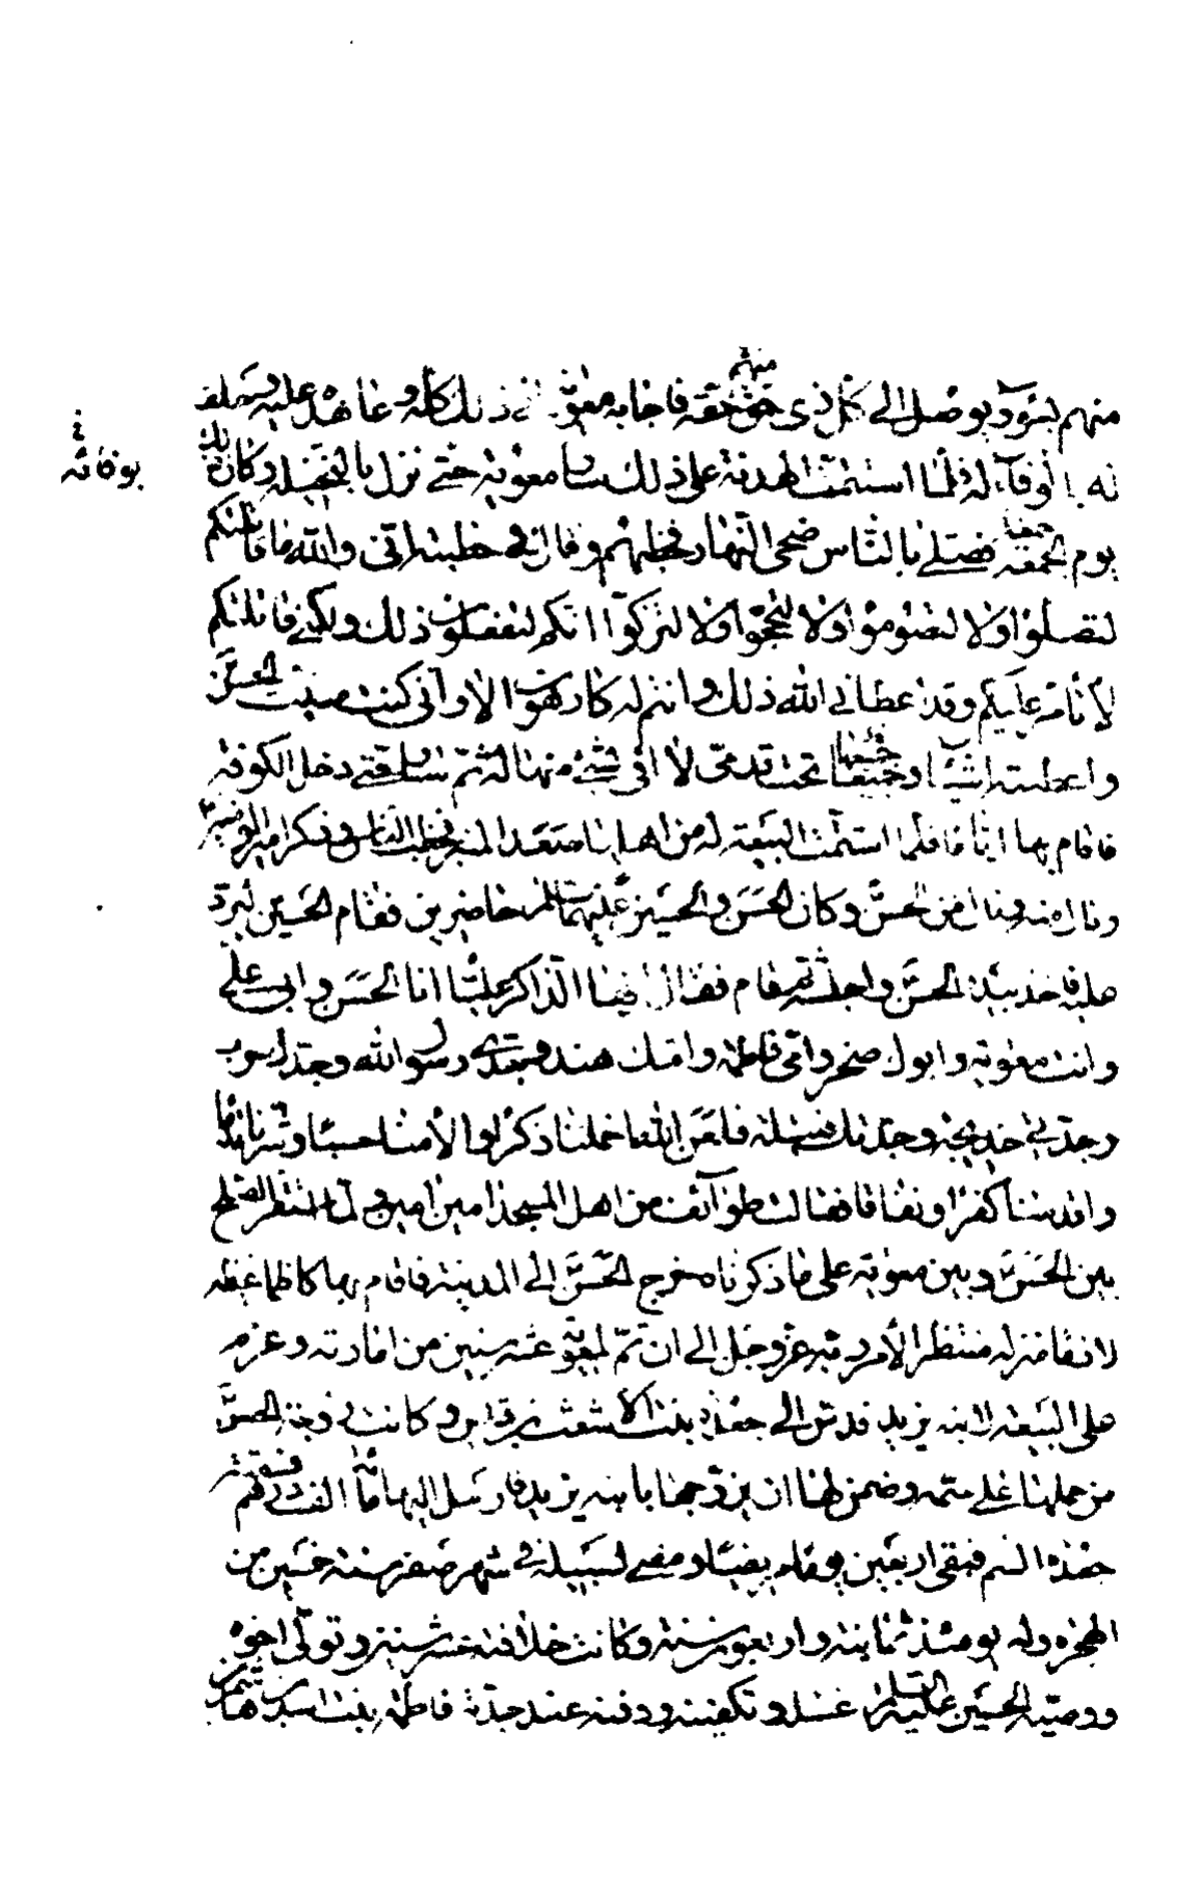 منهم بسوء ويوصل الى كل ذي حق منهم حقه فاجابه معوية الى ذلك كله وعاهده عليه وحلف
له بالوفاء له فلما استتمت الهدنة على ذلك سار معوية حتى نزل بالنخيلة وكان ذلك
بوفائه
يوم الجمعة فصلى بالناس ضحى النهار فخطبهم وقال في خطبته اني والله ما قاتلتكم
لتصلوا ولا لتصوموا ولا لتحجوا ولا لتزكوا انكم لتفعلون ذلك ولكني قاتلتكم
لأتأمر عليكم وقد اعطاني الله ذلك وانتم له كارهون الا واني كنت منيت الحسن
واعطيته اشياء وجميعها تحت قدمي لا افي بشئ منها له ثم سار حتى دخل الكوفة
فاقام بها اياما فلما استتمت البيعة له من اهلها صعد المنبر فخطب الناس وذكر امير المؤمنين
ونال منه ونال من الحسن وكان الحسن والحسين عليهما السلم حاضرين فقام الحسين ليرد
عليه فاخذ بيده الحسن واجلسه ثم قام فقال ايها الذاكر عليا انا الحسن وابي علي
وانت معوية وابوك صخر وامي فاطمة وامك هند وجدي رسول الله وجدك حرب
وجدتي خديجة وجدتك قتيلة فلعن الله اخملنا ذكرا والأمنا حسبا وشرنا قدما
واقدمنا كفرا ونفاقا فقالت طوائف من اهل المسجد امين امين ولما استقر الصلح
بين الحسن وبين معوية على ما ذكرناه خرج الحسن الى المدينة فاقام بها كاظما غيظه
لازما منزله منتظرا لأمر ربه عز وجل الى ان تم لمعوية عشر سنين من امارته وعزم
على البيعة لابنه يزيد فدس الى جعدة بنت الاشعث بن قيس وكانت زوجة الحسن
من حملها على سمه وضمن لها ان يزوجها بابنه يزيد فارسل اليها مائة الف درهم فسقته
جعدة السم فبقى اربعين يوما مريضا ومضى لسبيله في شهر صفر سنة خمسين من
الهجرة وله يومئذ ثمانية واربعون سنة وكانت خلافته عشر سنين وتولى اخوه
ووصيه الحسين عليه السلم غسله وتكفينه ودفنه عند جدته فاطمة بنت اسد بن هاشم